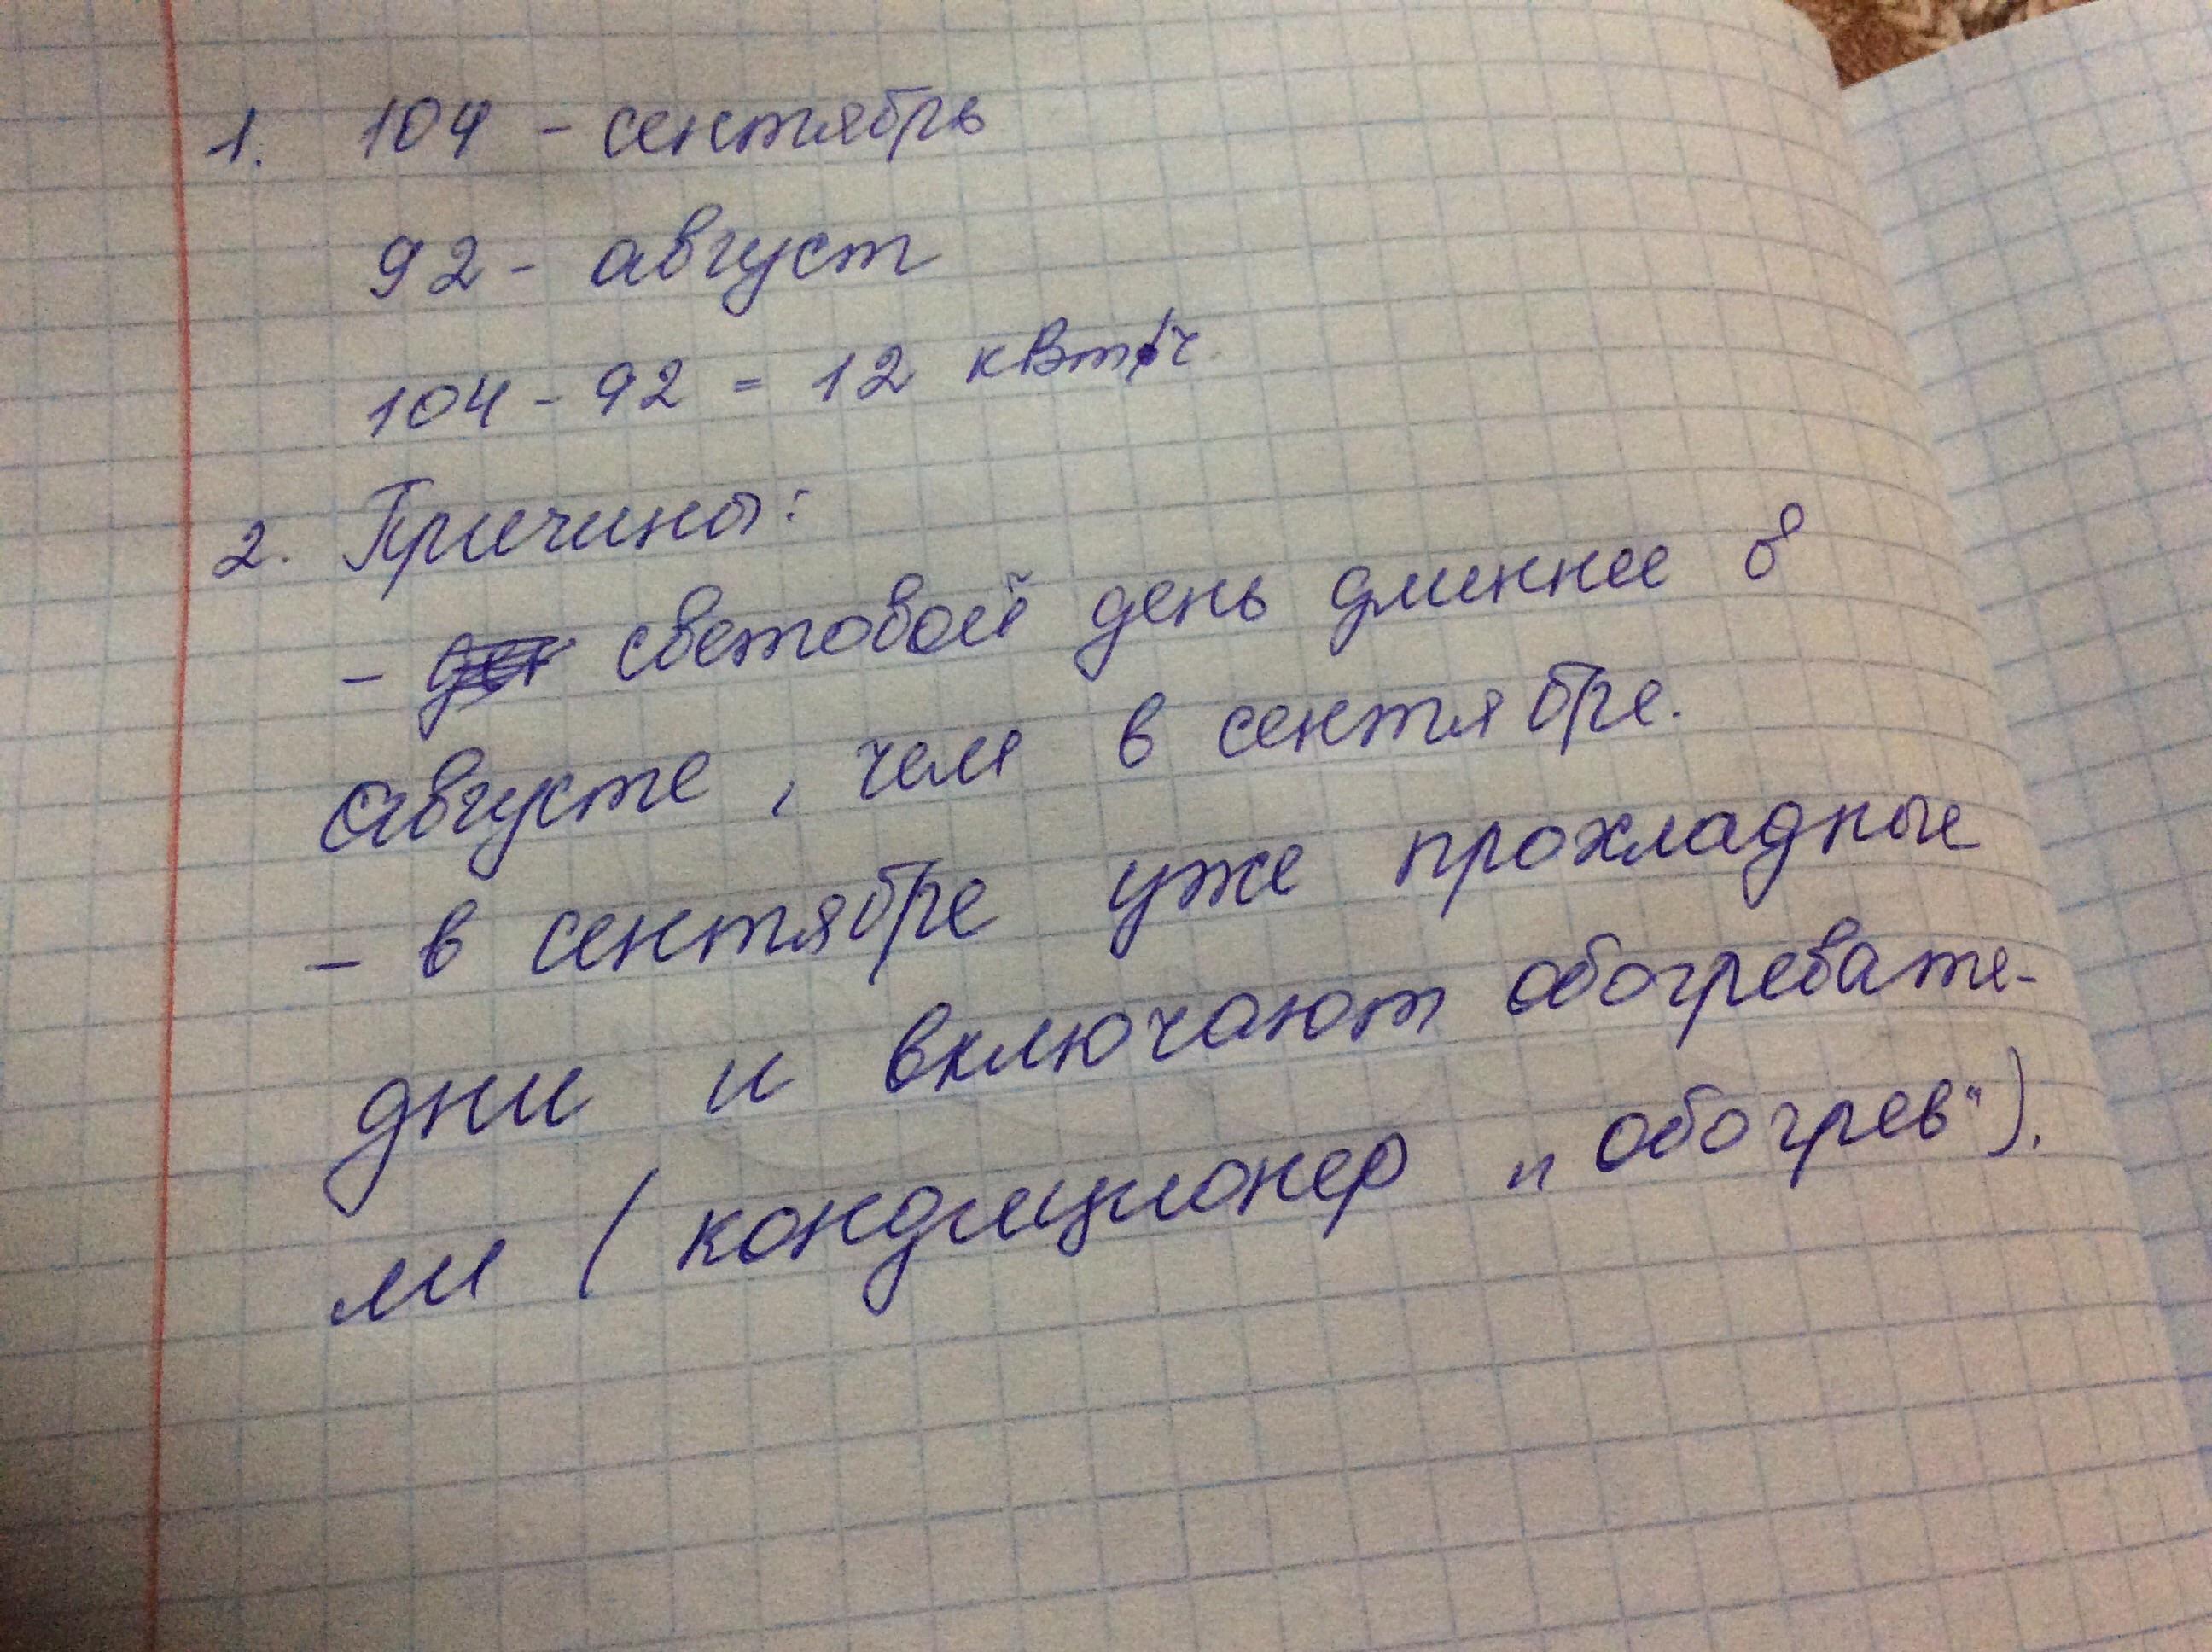 1. 104 - сентябрь
92 - август
104 - 92 = 12 кВт/ч.
2. Причины:
- световой день длиннее в
августе, чем в сентябре.
- в сентябре уже прохладные
дни и включают обогревате-
ли (кондиционер „обогрев“).